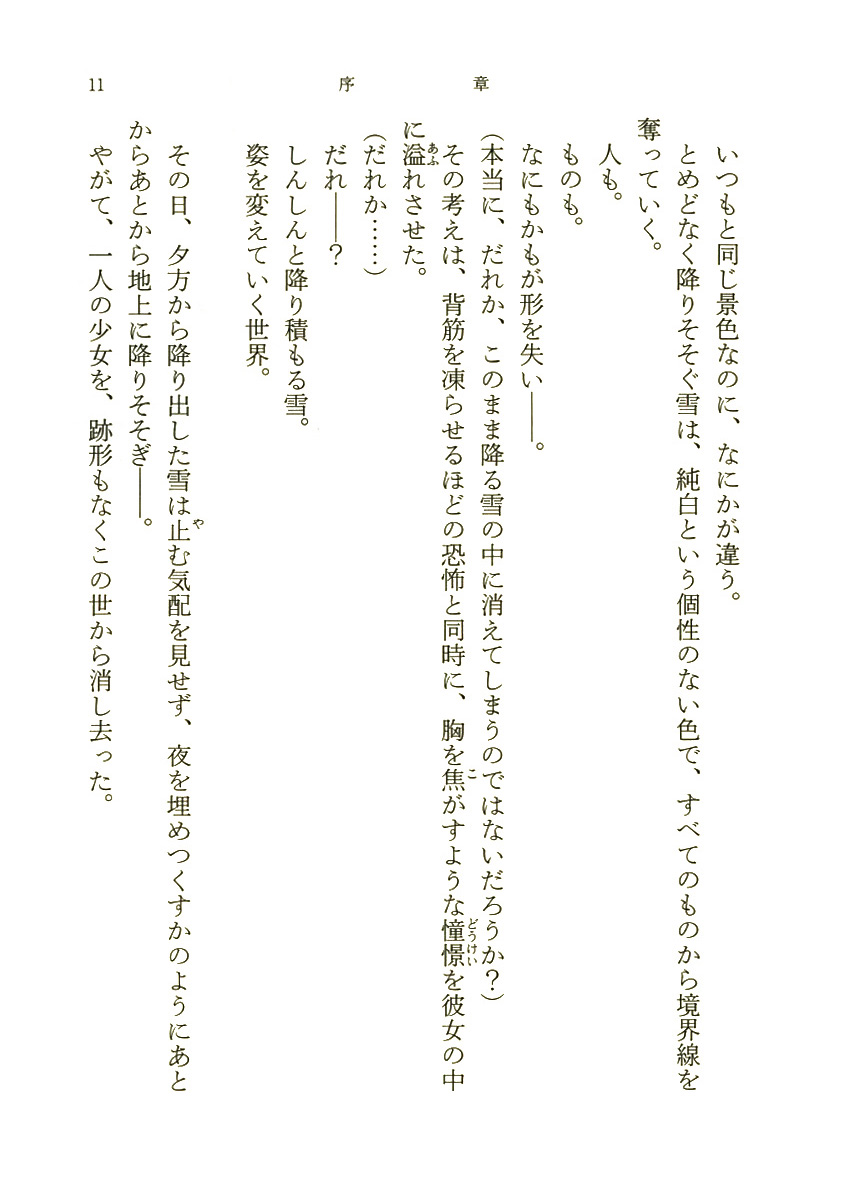 11
序章
いつもと同じ景色なのに、なにかが違う。
とめどなく降りそそぐ雪は、純白という個性のない色で、すべてのものから境界線を
奪っていく。
人も。
ものも。
なにもかもが形を失い――。
(本当に、だれか、このまま降る雪の中に消えてしまうのではないだろうか？)
その考えは、背筋を凍らせるほどの恐怖と同時に、胸を焦がすような憧憬を彼女の中
に溢れさせた。
(だれか……)
だれ――？
しんしんと降り積もる雪。
姿を変えていく世界。
その日、夕方から降り出した雪は止む気配を見せず、夜を埋めつくすかのようにあと
からあとから地上に降りそそぎ――。
やがて、一人の少女を、跡形もなくこの世から消し去った。